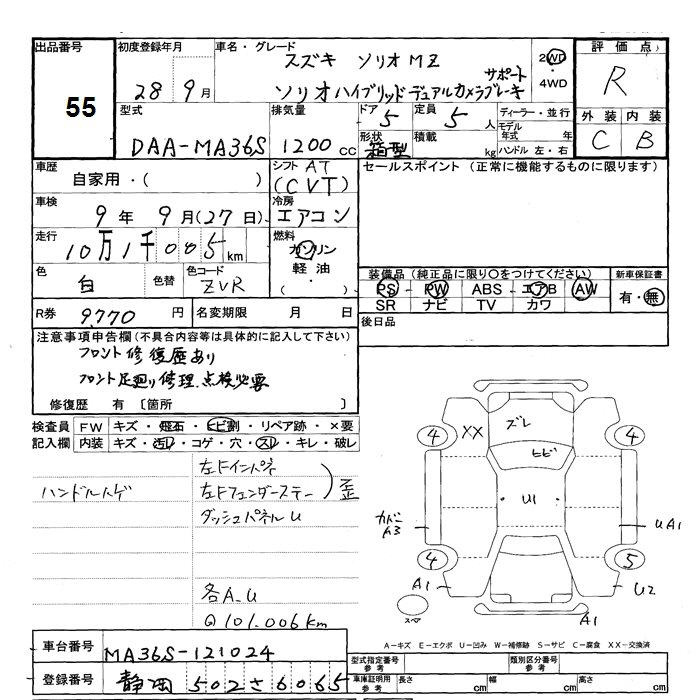 出品番号
55
初度登録年月
28 9月
車名・グレード
スズキ ソリオMZ
ソリオハイブリッドデュアルカメラブレーキ
サポート
2WD
・
4WD
評価点
R
外装 内装
C B
型式
DAA-MA36S
排気量
1200 cc
ドア
5
定員
5 人
形状
箱型
積載
kg
ディーラー・並行
モデル
年式 年
ハンドル 左・右
車歴
自家用・( )
シフト AT
(CVT)
セールスポイント (正常に機能するものに限ります)
車検
9年 9月(27日)
冷房
エアコン
走行
10万1千005km
燃料
ガソリン
軽油
( ・ )
色
白
色替
色コード
ZVR
装備品(純正品に限り○をつけてください)
PS PW ABS エアB AW
SR ナビ TV カワ
新車保証書
有・無
R券 9,770 円
名変期限 月 日
後日品
注意事項申告欄(不具合内容等は具体的に記入して下さい)
フロント修復歴あり
フロント足廻り修理、点検必要
修復歴 有 〔箇所 〕
検査員
記入欄
FW キズ・飛石・ヒビ割・リペア跡・×要
内装 キズ・汚レ・コゲ・穴・スレ・キレ・破レ
ハンドルハゲ
左Fインパネ
左Fフェンダーステー
) 歪
ダッシュパネルU
各A.U
Q101,006km
4 XX ズレ 4
ヒビ
U1
カバー
A3
UA1
4 5
A1 U2
スペア
A1
A-キズ E-エクボ U-凹み W-補修跡 S-サビ C-腐食 XX-交換済
車台番号
MA36S-121024
登録番号
静岡 502さ6065
型式指定番号
参考
類別区分番号
参考
車庫証明用
参考
長さ cm
幅 cm
高さ cm